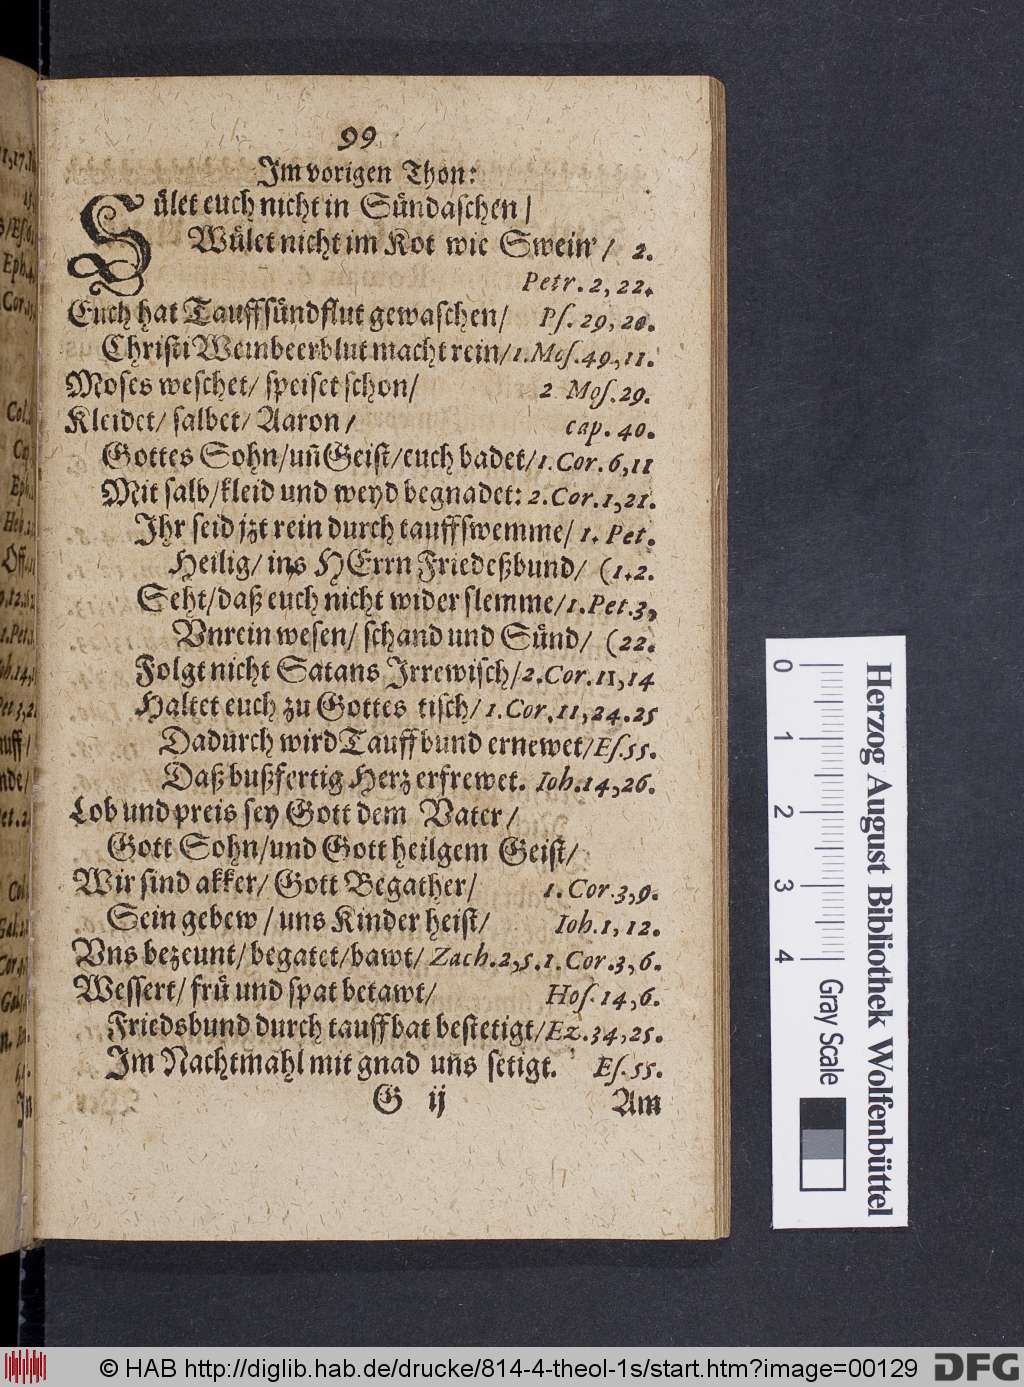 99
Im vorigen Thon:
Sület euch nicht in Sündaschen /
Wület nicht im Kot wie Swein' / 2.
Petr. 2, 22.
Euch hat Tauffsündflut gewaschen / Ps. 29, 20.
Christi Weinbeerblut macht rein / 1. Mos. 49, 11.
Moses weschet / speiset schon / 2 Mos. 29.
Kleidet / salbet / Aaron / cap. 40.
Gottes Sohn / uñ Geist / euch badet / 1. Cor. 6, 11
Mit salb / kleid und weyd begnadet: 2. Cor. 1, 21.
Ihr seid jzt rein durch tauffswemme / 1. Pet.
Heilig / ins HErrn Friedeßbund / (1. 2.
Seht / daß euch nicht wider slemme / 1. Pet. 3,
Vnrein wesen / schand und Sünd / (22.
Folgt nicht Satans Irrewisch / 2. Cor. 11, 14
Haltet euch zu Gottes tisch / 1. Cor. 11, 24. 25
Dadurch wird Tauffbund ernewet / Es. 55.
Daß bußfertig Herz erfrewet. Ioh. 14, 26.
Lob und preis sey Gott dem Vater /
Gott Sohn / und Gott heilgem Geist /
Wir sind akker / Gott Begather / 1. Cor. 3, 9.
Sein gebew / uns Kinder heist / Ioh. 1, 12.
Vns bezeunt / begatet / bawt / Zach. 2, 5. 1. Cor. 3, 6.
Wessert / frü und spat betawt / Hos. 14, 6.
Friedsbund durch tauffbat bestetigt / Ez. 34, 25.
Im Nachtmahl mit gnad uns setigt. Es. 55.
G ij Am
Herzog August Bibliothek Wolfenbüttel
0 1 2 3 4
Gray Scale
© HAB http://diglib.hab.de/drucke/814-4-theol-1s/start.htm?image=00129
DFG